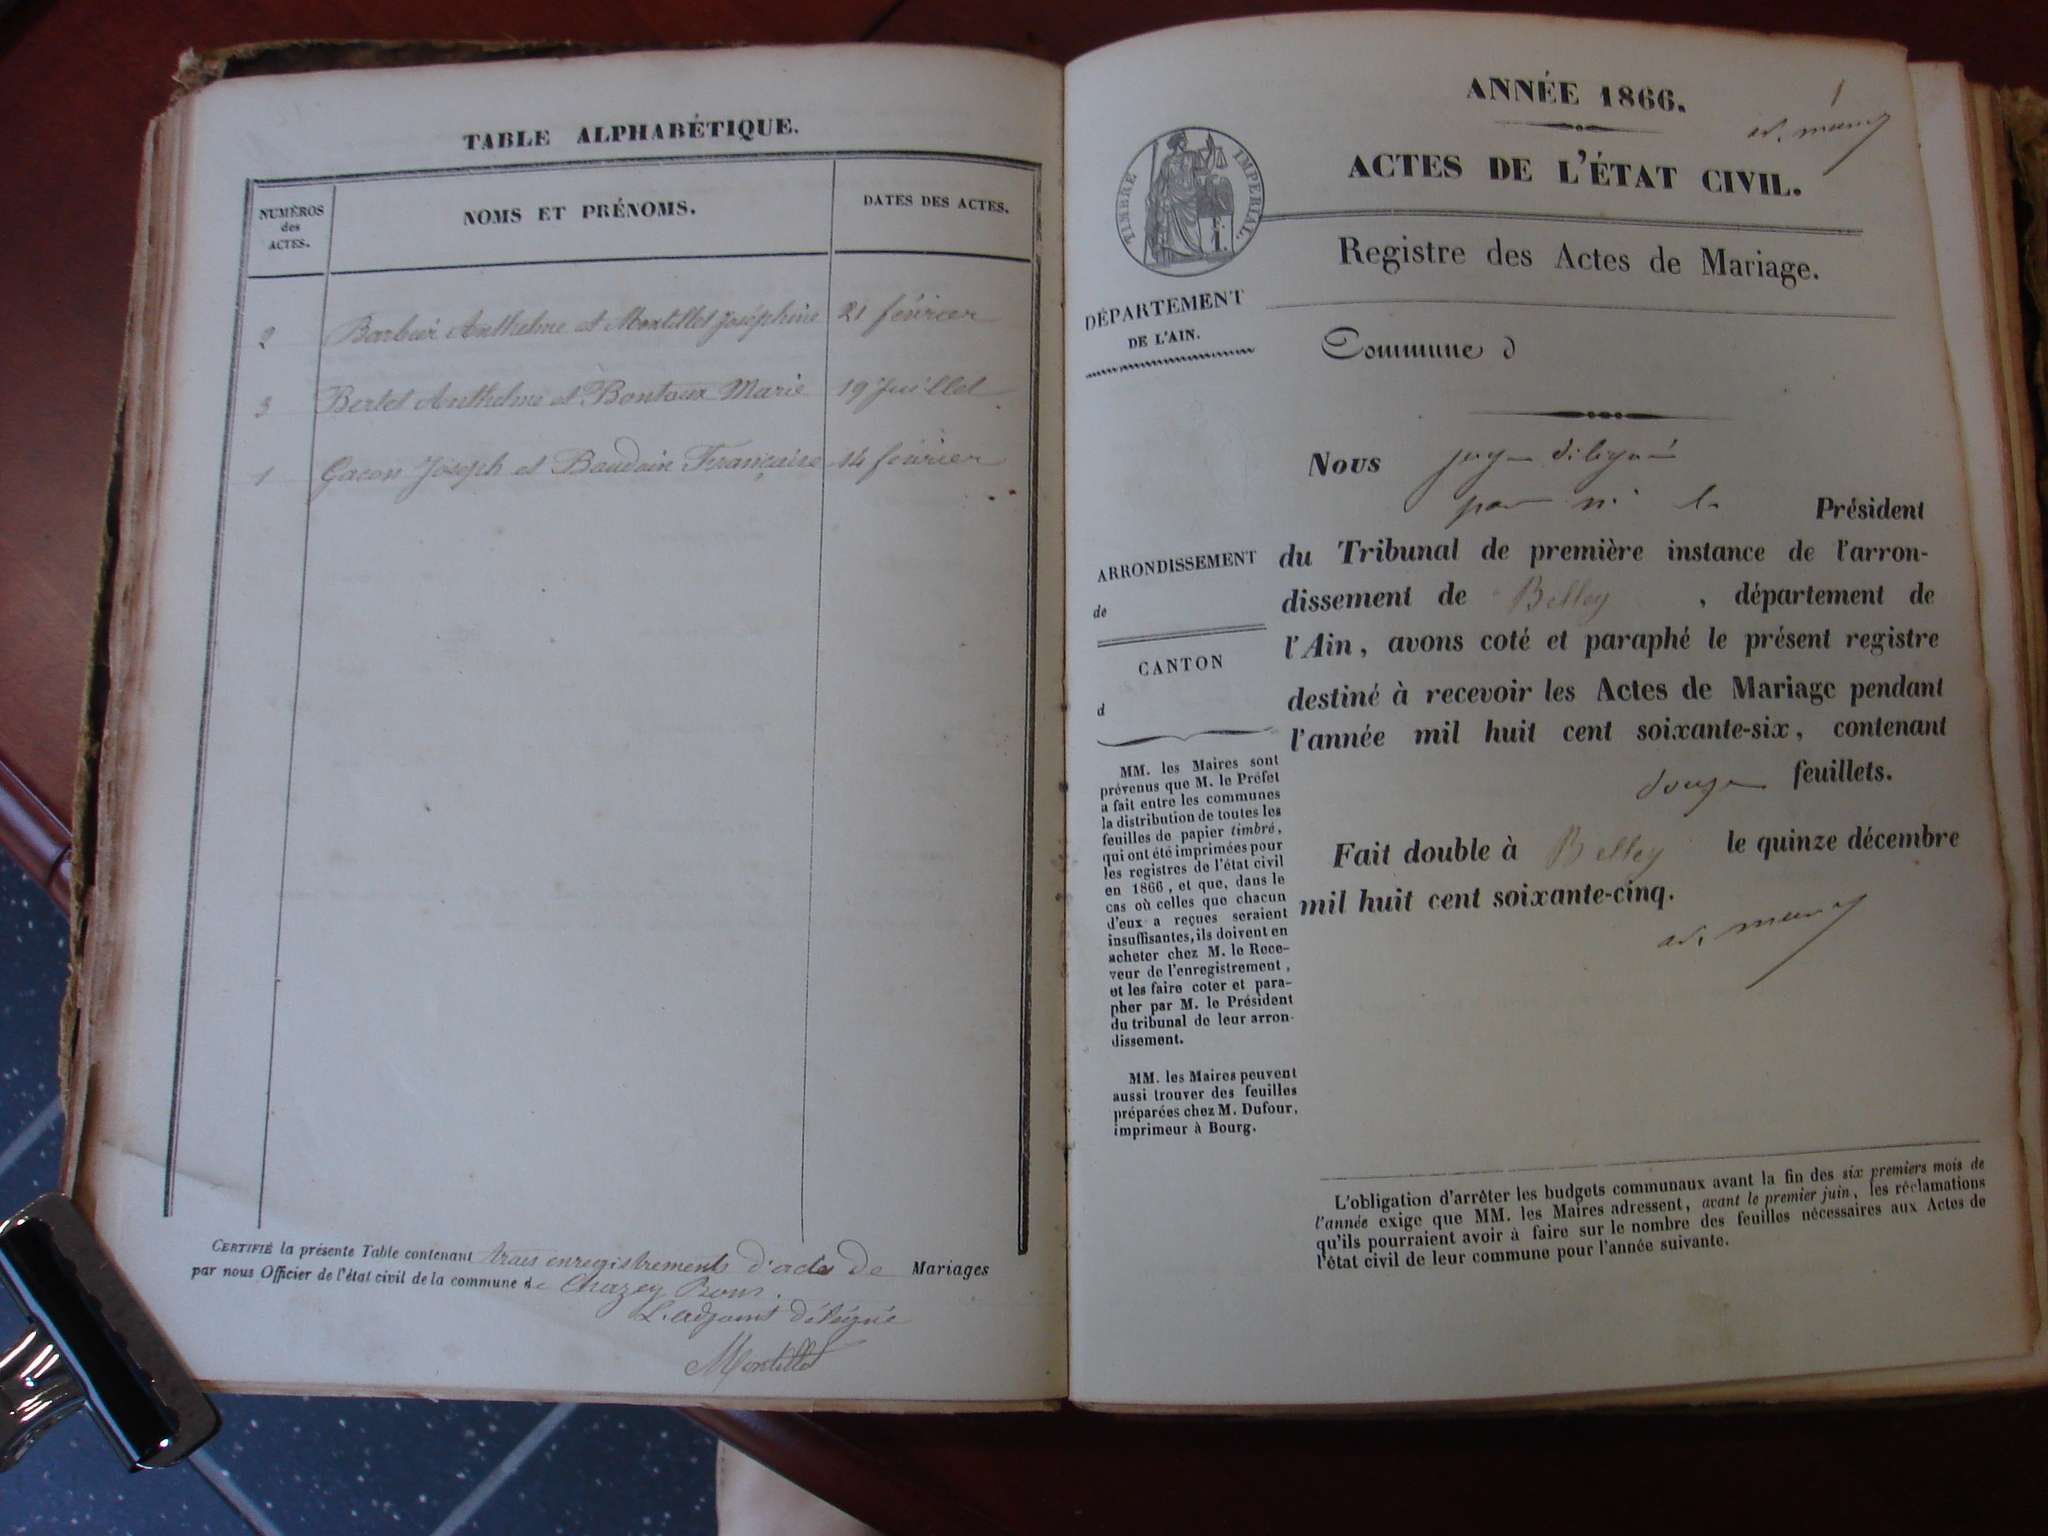 TABLE ALPHABÉTIQUE.
NUMÉROS
des
ACTES.
NOMS ET PRÉNOMS.
DATES DES ACTES.
2 Barbier Anthelme et Montillet Joséphine 21 février
3 Bertet Anthelme et Bontoux Marie 19 Juillet
1 Gacon Joseph et Baudoin Française 14 février
CERTIFIÉ la présente Table contenant trois enregistrements d'actes de Mariages
par nous Officier de l'état civil de la commune de Chazey Bons.
L'adjoint délégué
Montillet
ANNÉE 1866.
1
ACTES DE L'ÉTAT CIVIL.
TIMBRE IMPERIAL.
1 F.
Registre des Actes de Mariage.
DÉPARTEMENT
DE L'AIN.
Commune d
Nous juge délégué
par m. le Président
ARRONDISSEMENT
de
CANTON
d
du Tribunal de première instance de l'arron-
dissement de Belley, département de
l'Ain, avons coté et paraphé le présent registre
destiné à recevoir les Actes de Mariage pendant
l'année mil huit cent soixante-six, contenant
douze feuillets.
Fait double à Belley le quinze décembre
mil huit cent soixante-cinq.
MM. les Maires sont
prévenus que M. le Préfet
a fait entre les communes
la distribution de toutes les
feuilles de papier timbré,
qui ont été imprimées pour
les registres de l'état civil
en 1866, et que, dans le
cas où celles que chacun
d'eux a reçues seraient
insuffisantes, ils doivent en
acheter chez M. le Rece-
veur de l'enregistrement,
et les faire coter et para-
pher par M. le Président
du tribunal de leur arron-
dissement.
MM. les Maires peuvent
aussi trouver des feuilles
préparées chez M. Dufour,
imprimeur à Bourg.
L'obligation d'arrêter les budgets communaux avant la fin des six premiers mois de
l'année exige que MM. les Maires adressent, avant le premier juin, les réclamations
qu'ils pourraient avoir à faire sur le nombre des feuilles nécessaires aux Actes de
l'état civil de leur commune pour l'année suivante.